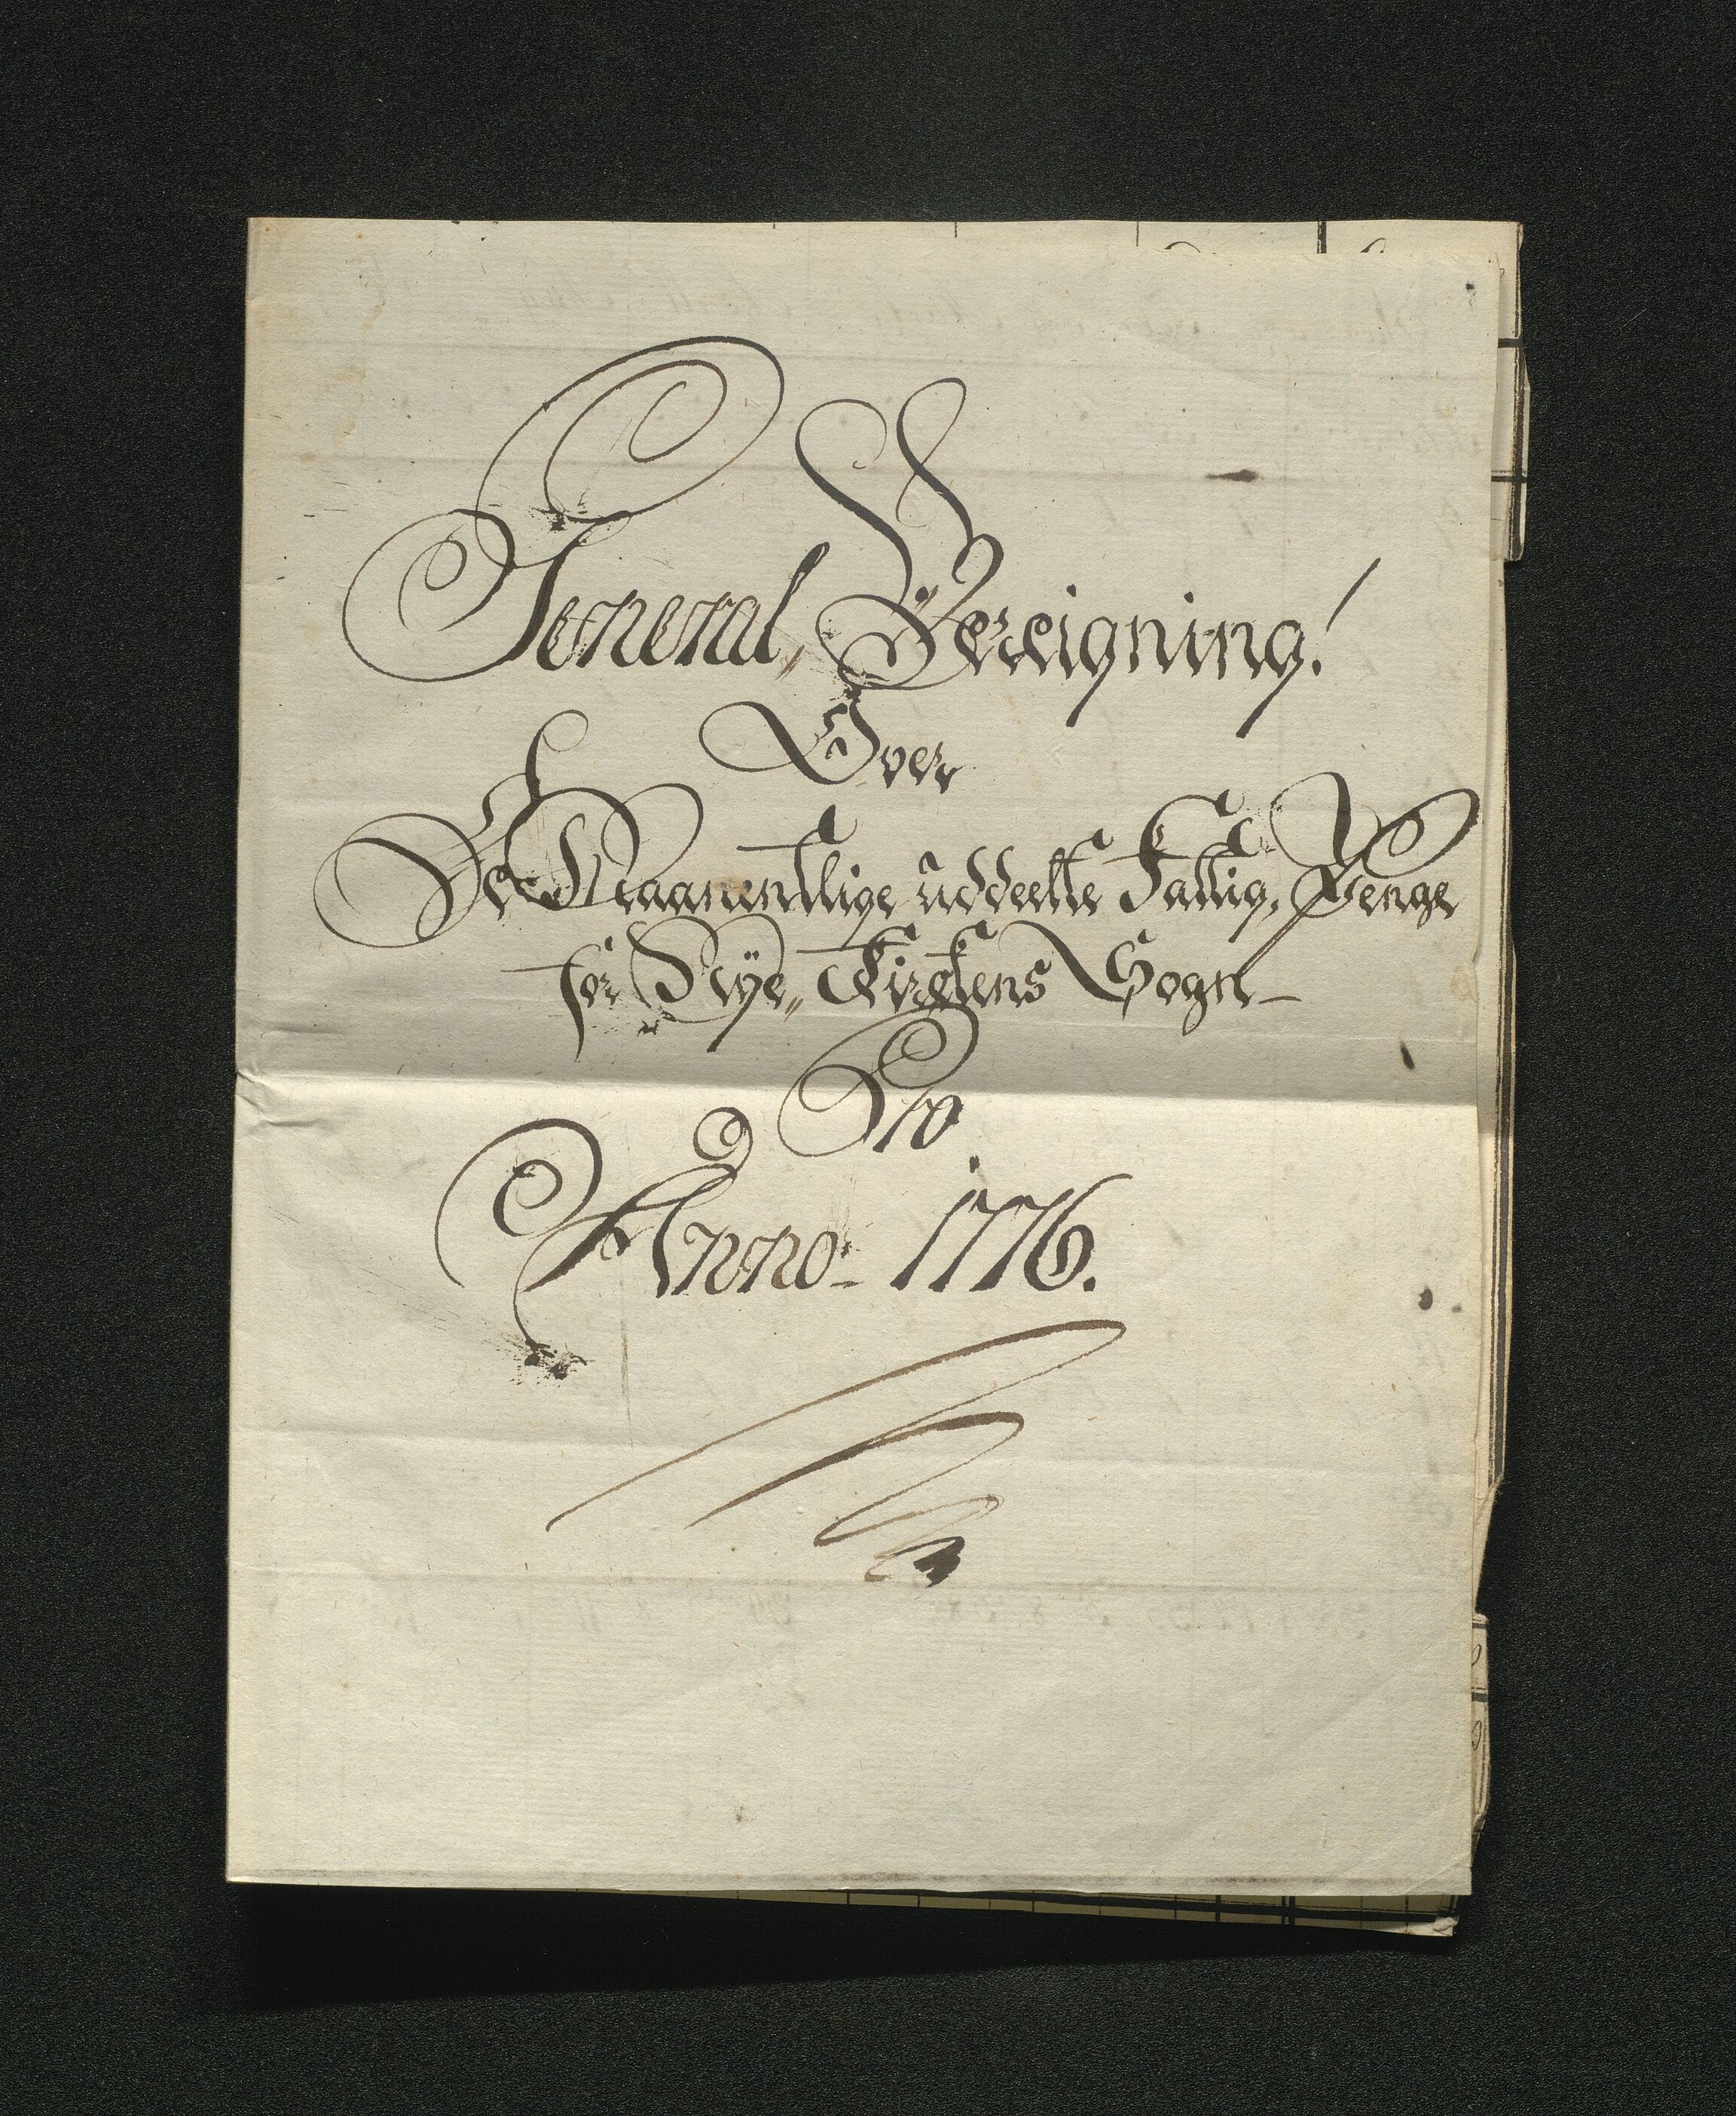 General, Bereigning!
Over
De Maanentlige üddeelte Fattig, Penge
for Nye, Kirkens Sogn
Pro
Anno 1776.